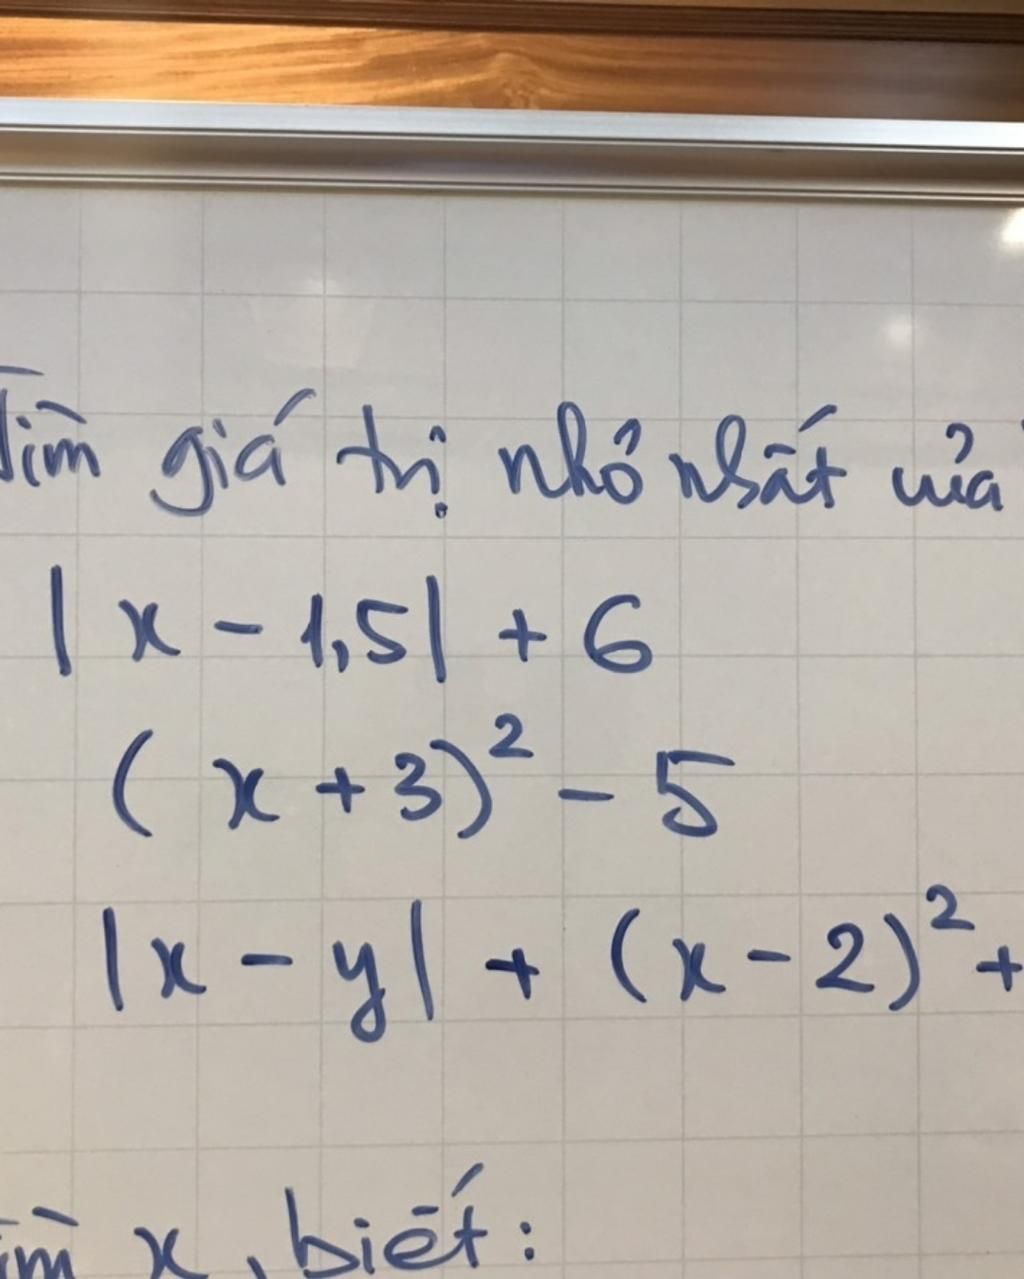 Tìm giá trị nhỏ nhất của
|x - 1,5| + 6
(x + 3)² - 5
|x - y| + (x - 2)² +
Tìm x, biết: